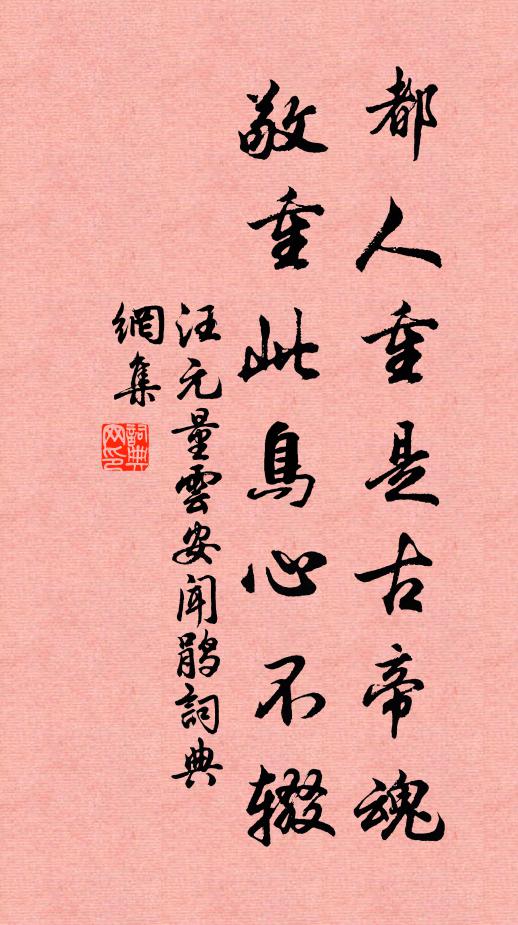 都人重是古帝魂
敬重此鳥心不辍
汪元量雲安闻鹃詞典
網集
詞典
网印